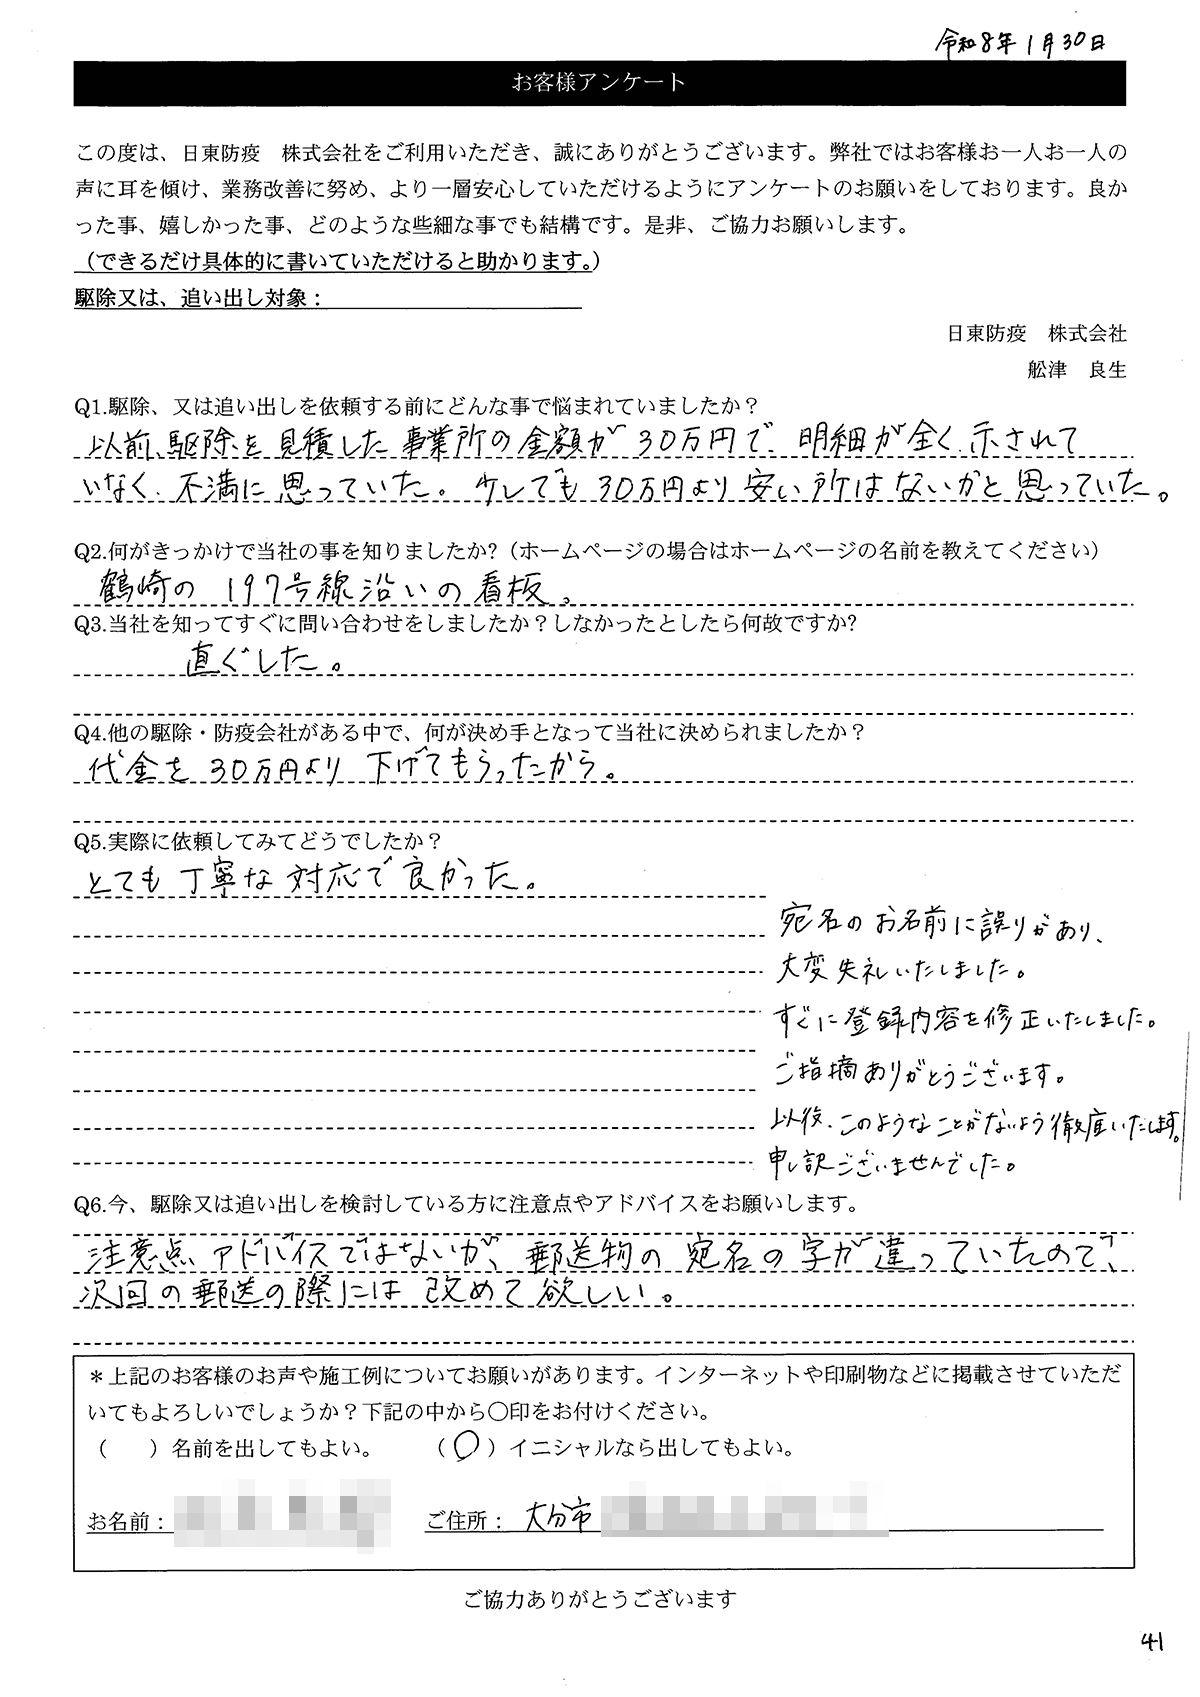 令和8年1月30日
お客様アンケート
この度は、日東防疫　株式会社をご利用いただき、誠にありがとうございます。弊社ではお客様お一人お一人の
声に耳を傾け、業務改善に努め、より一層安心していただけるようにアンケートのお願いをしております。良か
った事、嬉しかった事、どのような些細な事でも結構です。是非、ご協力お願いします。
（できるだけ具体的に書いていただけると助かります。）
駆除又は、追い出し対象：
日東防疫　株式会社
舩津　良生
Q1.駆除、又は追い出しを依頼する前にどんな事で悩まれていましたか？
以前、駆除を見積した事業所の金額が30万円で、明細が全く示されて
いなく、不満に思っていた。少しでも30万円より安い所はないかと思っていた。
Q2.何がきっかけで当社の事を知りましたか?（ホームページの場合はホームページの名前を教えてください）
鶴崎の197号線沿いの看板。
Q3.当社を知ってすぐに問い合わせをしましたか？しなかったとしたら何故ですか?
直ぐした。
Q4.他の駆除・防疫会社がある中で、何が決め手となって当社に決められましたか？
代金を30万円より下げてもらったから。
Q5.実際に依頼してみてどうでしたか？
とても丁寧な対応で良かった。
宛名のお名前に誤りがあり、
大変失礼いたしました。
すぐに登録内容を修正いたしました。
ご指摘ありがとうございます。
以後、このようなことがないよう徹底いたします。
申し訳ございませんでした。
Q6.今、駆除又は追い出しを検討している方に注意点やアドバイスをお願いします。
注意点、アドバイスではないが、郵送物の宛名の字が違っていたので、
次回の郵送の際には改めて欲しい。
＊上記のお客様のお声や施工例についてお願いがあります。インターネットや印刷物などに掲載させていただ
いてもよろしいでしょうか？下記の中から〇印をお付けください。
（　　）名前を出してもよい。　　（〇）イニシャルなら出してもよい。
お名前：　　ご住所：大分市
ご協力ありがとうございます
41